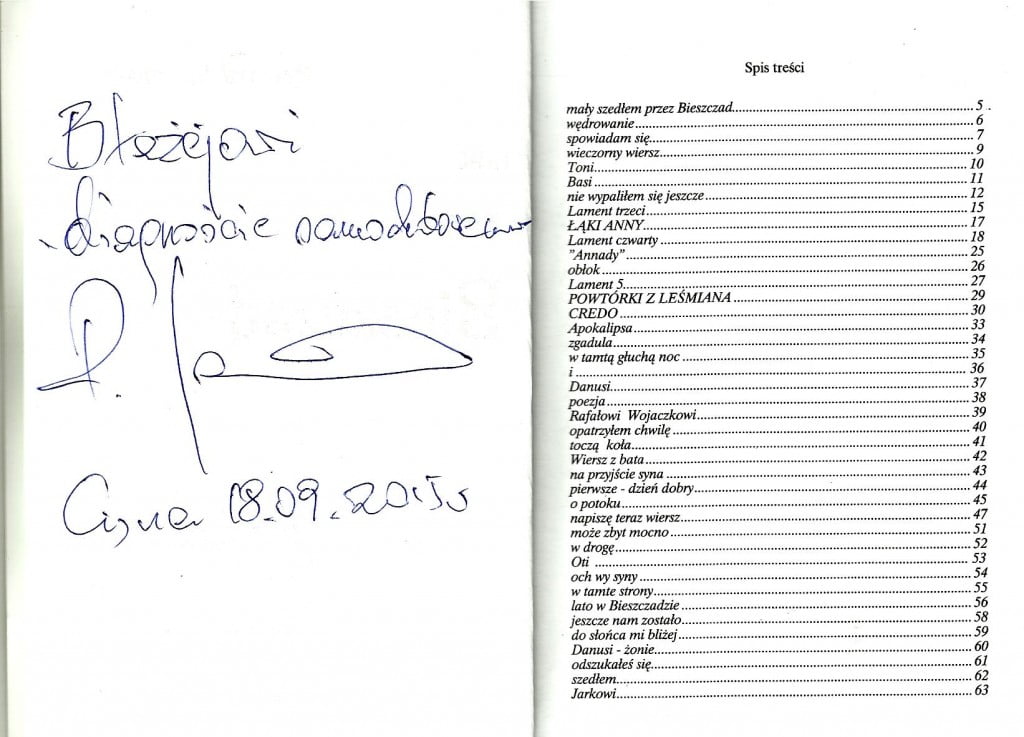 Błażejowi
diagnoście
Cisna 18.09.2015
Spis treści
mały szedłem przez Bieszczad 5
wędrowanie 6
spowiadam się 7
wieczorny wiersz 9
Toni 10
Basi 11
nie wypaliłem się jeszcze 12
Lament trzeci 15
ŁĄKI ANNY 17
Lament czwarty 18
"Annady" 25
obłok 26
Lament 5 27
POWTÓRKI Z LEŚMIANA 29
CREDO 30
Apokalipsa 33
zgadula 34
w tamtą głuchą noc 35
i 36
Danusi 37
poezja 38
Rafałowi Wojaczkowi 39
opatrzyłem chwilę 40
toczą koła 41
Wiersz z bata 42
na przyjście syna 43
pierwsze - dzień dobry 44
o potoku 45
napiszę teraz wiersz 47
może zbyt mocno 51
w drogę 52
Oti 53
och wy syny 54
w tamte strony 55
lato w Bieszczadzie 56
jeszcze nam zostało 58
do słońca mi bliżej 59
Danusi - żonie 60
odszukałeś się 61
szedłem 62
Jarkowi 63